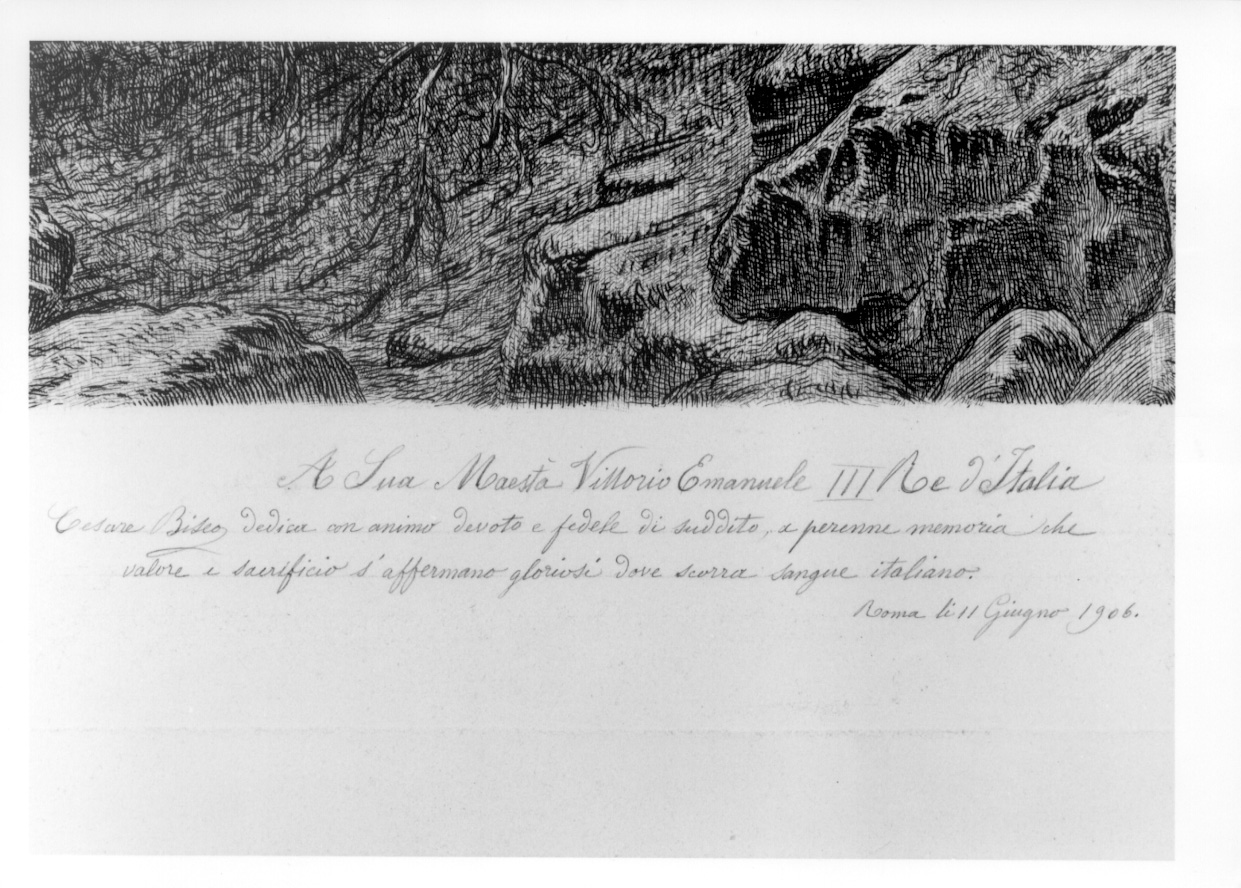 A Sua Maestà Vittorio Emanuele III Re d'Italia
Cesare Biseo dedica con animo devoto e fedele di suddito, a perenne memoria che
valore e sacrificio s'affermano gloriosi dove scorra sangue italiano.
Roma li 11 Giugno 1906.